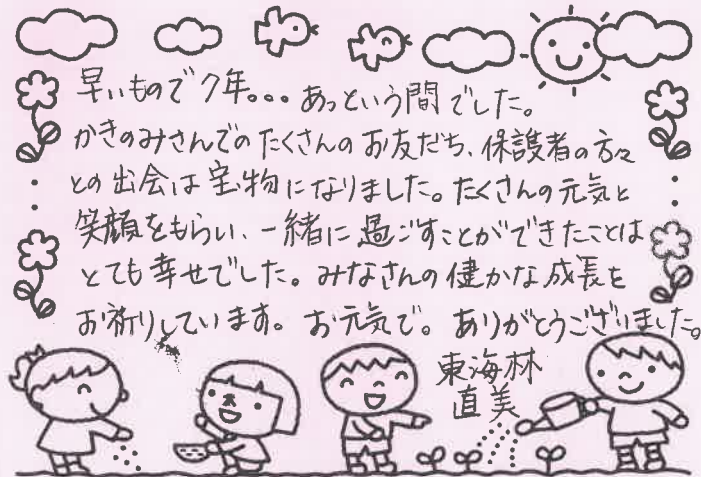 早いもので7年。。。あっという間でした。
かきのみさんでのたくさんのお友だち、保護者の方々
との出会は宝物になりました。たくさんの元気と
笑顔をもらい、一緒に過ごすことができたことは
とても幸せでした。みなさんの健かな成長を
お祈りしています。お元気で。ありがとうございました。
東海林
直美